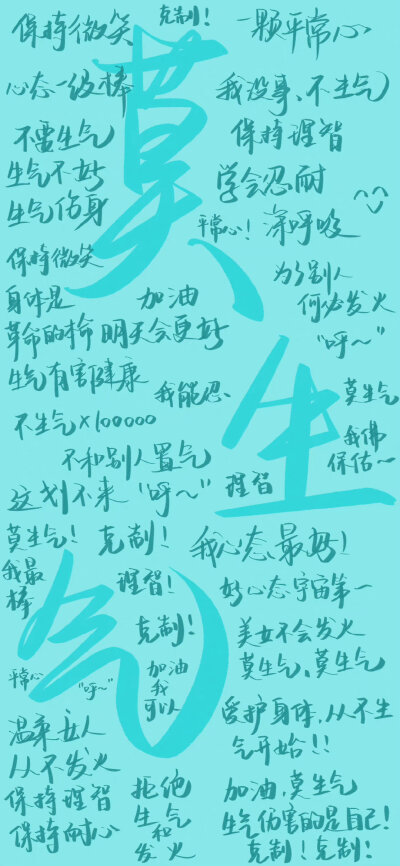 克制！
保持微笑
一颗平常心
莫
心态一级棒
我没事、不生气
不需生气
保持理智
生气不好
学会忍耐
生气伤身
平常心！
深呼吸
保持微笑
为了别人
何必发火
身体是
革命的本命
加油
明天会更好
“呼～”
生气有害健康
我能忍、
生
莫生气
不生气×100000
我佛
保佑～
不和别人置气
这划不来“呼～”
理智
莫生气！
克制！
我心态最好！
气
我最
棒
理智！
好心态宇宙第一
克制！
美女不会发火
莫生气、莫生气
平常心
“呼～”
加油
我
可以
爱护身体，从不生
气开始！！
温柔女人
从不发火
保持理智
保持耐心
拒绝
生气
和
发火
加油，莫生气
生气伤害的是自己！
克制！克制！